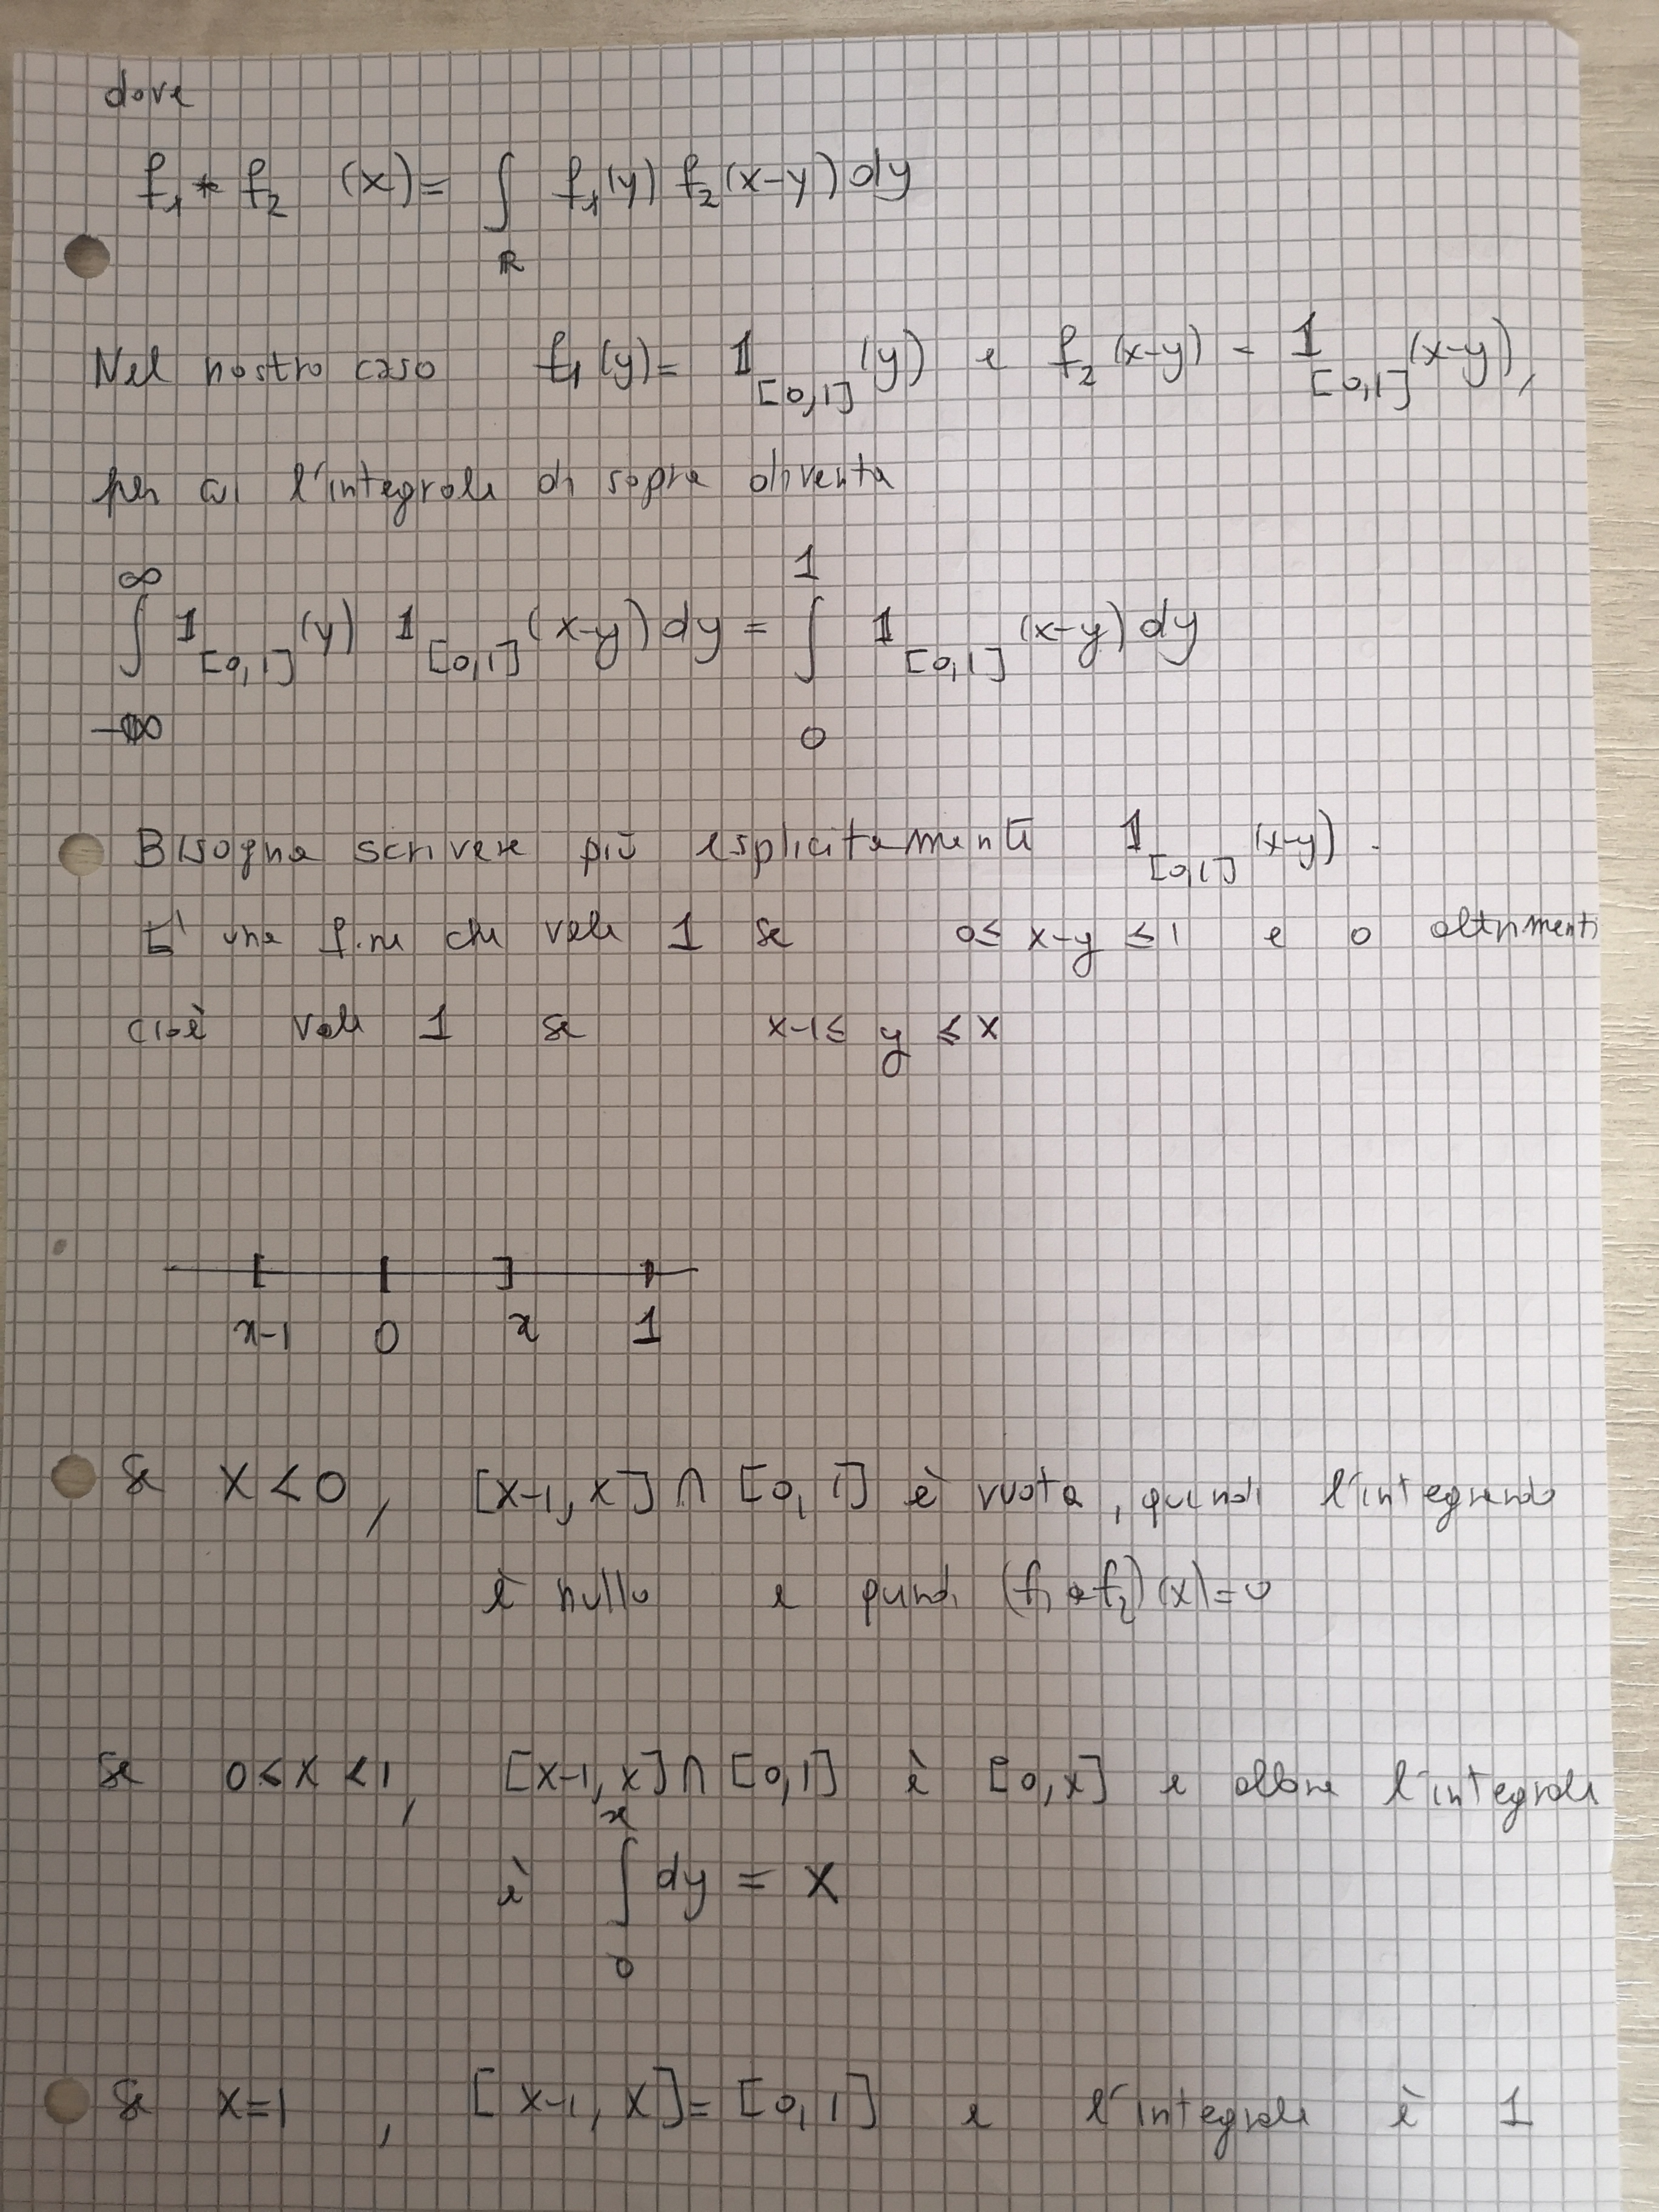 dove
f₁ * f₂ (x) = ∫_ℝ f₁(y) f₂(x-y) dy
Nel nostro caso f₁(y) = 𝟙_[0,1] (y) e f₂(x-y) = 𝟙_[0,1] (x-y),
per cui l'integrale di sopra diventa
∫_{-∞}^{∞} 𝟙_[0,1] (y) 𝟙_[0,1] (x-y) dy = ∫_0^1 𝟙_[0,1] (x-y) dy
Bisogna scrivere più esplicitamente 𝟙_[0,1] (x-y).
E' una f.ne che vale 1 se 0≤ x-y ≤1 e 0 altrimenti
cioè vale 1 se x-1≤ y ≤ x
x-1 0 x 1
Se x<0, [x-1, x] ∩ [0,1] è vuota, quindi l'integrando
è nullo e quindi (f₁*f₂)(x)=0
Se 0≤x<1, [x-1, x] ∩ [0,1] è [0,x] e allora l'integrale
è ∫_0^x dy = x
Se x=1, [x-1, x] = [0,1] e l'integrale è 1